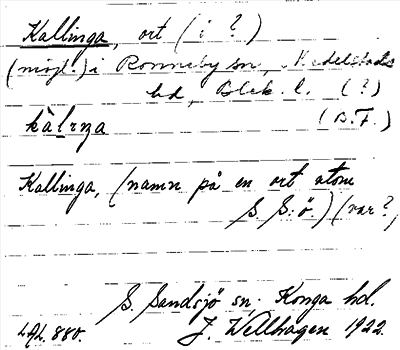 Kallinga, ort (i ?)
(möjl.) i Ronneby sn, Medelstads
hd, Blek. l. (?)
(B.F.)
Kallinga, (namn på en ort utom
S. S:ö.) (var?)
S. Sandsjö sn. Konga hd.
LAL. 880. J. Wellhagen 1922.